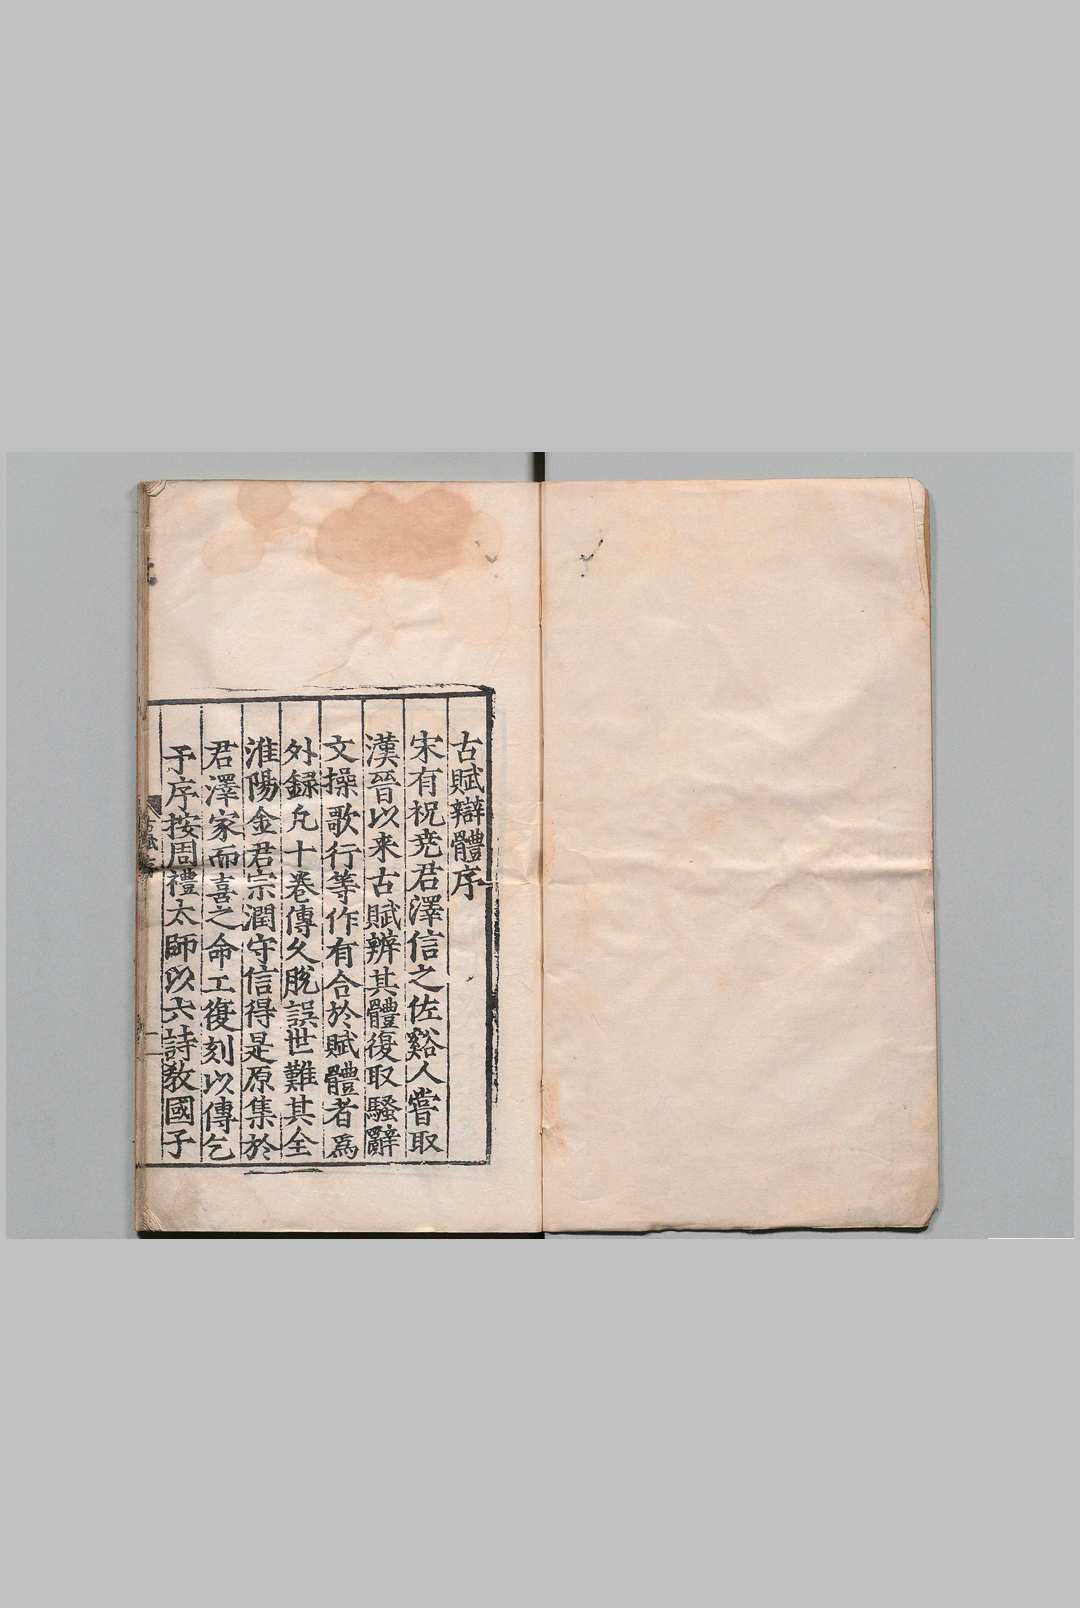 古賦辯體序
宋有祝尭君澤信之佐谿人嘗取
漢晉以来古賦辨其體復取騷辭
文操歌行等作有合於賦體者爲
外録凢十卷傳久脫誤世難其全
淮陽金君宗潤守信得是原集於
君澤家而喜之命工復刻以傳乞
予序按周禮太師以六詩敎國子